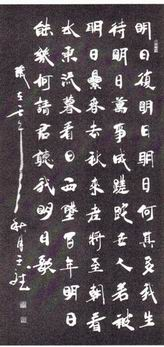 明日復明日明日何其多我生
待明日萬事成蹉跎世人若被
明日累春去秋來老將至朝看
水東流暮看日西墜百年明日
能幾何請君聽我明日歌